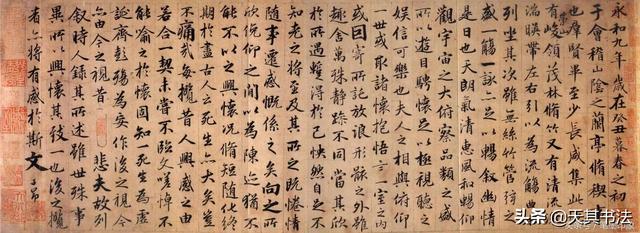 永和九年歲在癸丑暮春之初會
于會稽山陰之蘭亭脩稧事
也羣賢畢至少長咸集此地
有崇山峻領茂林脩竹又有清流激
湍暎帶左右引以為流觴曲水
列坐其次雖無絲竹管弦之
盛一觴一詠亦足以暢敘幽情
是日也天朗氣清惠風和暢仰
觀宇宙之大俯察品類之盛
所以遊目騁懷足以極視聽之
娛信可樂也夫人之相與俯仰
一世或取諸懷抱悟言一室之內
或因寄所託放浪形骸之外雖
趣舍萬殊靜躁不同當其欣
於所遇蹔得於己怏然自足不
知老之將至及其所之既惓情
隨事遷感慨係之矣向之所
欣俛仰之間以為陳迹猶不
能不以之興懷況脩短隨化終
期於盡古人云死生亦大矣豈
不痛哉每攬昔人興感之由
若合一契未嘗不臨文嗟悼不
能喻之於懷固知一死生為虛
誕齊彭殤為妄作後之視今
亦由今之視昔悲夫故列
敘時人錄其所述雖世殊事
異所以興懷其致一也後之攬
者亦將有感於斯文
头条 @天其书法